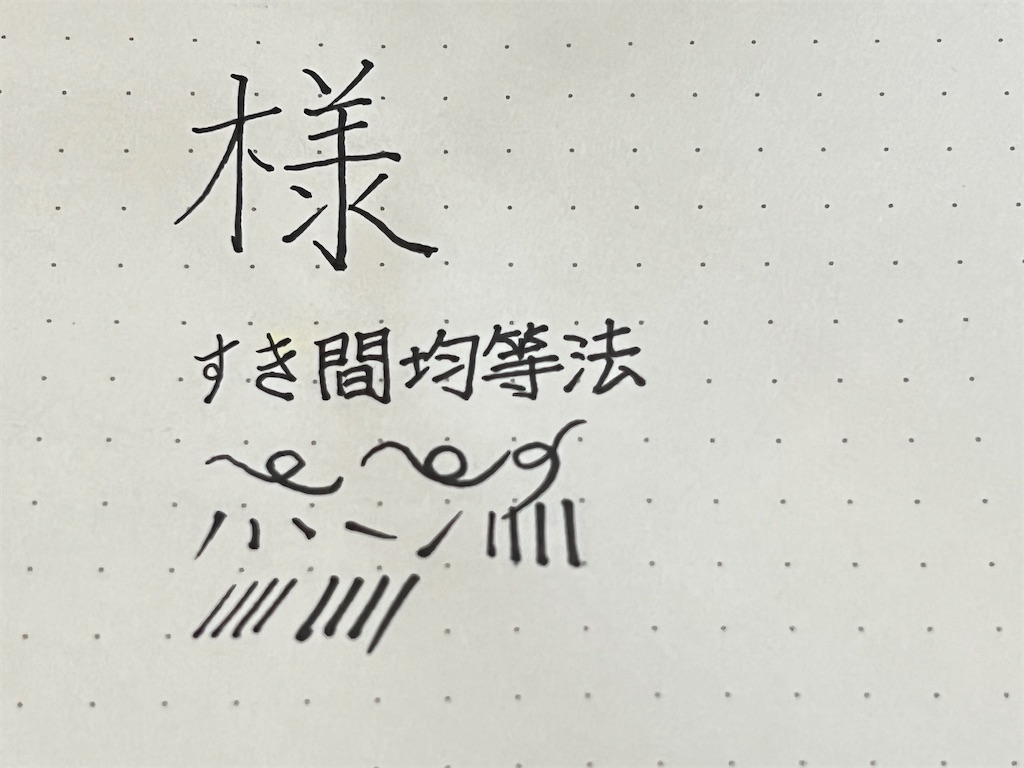 様
すき間均等法